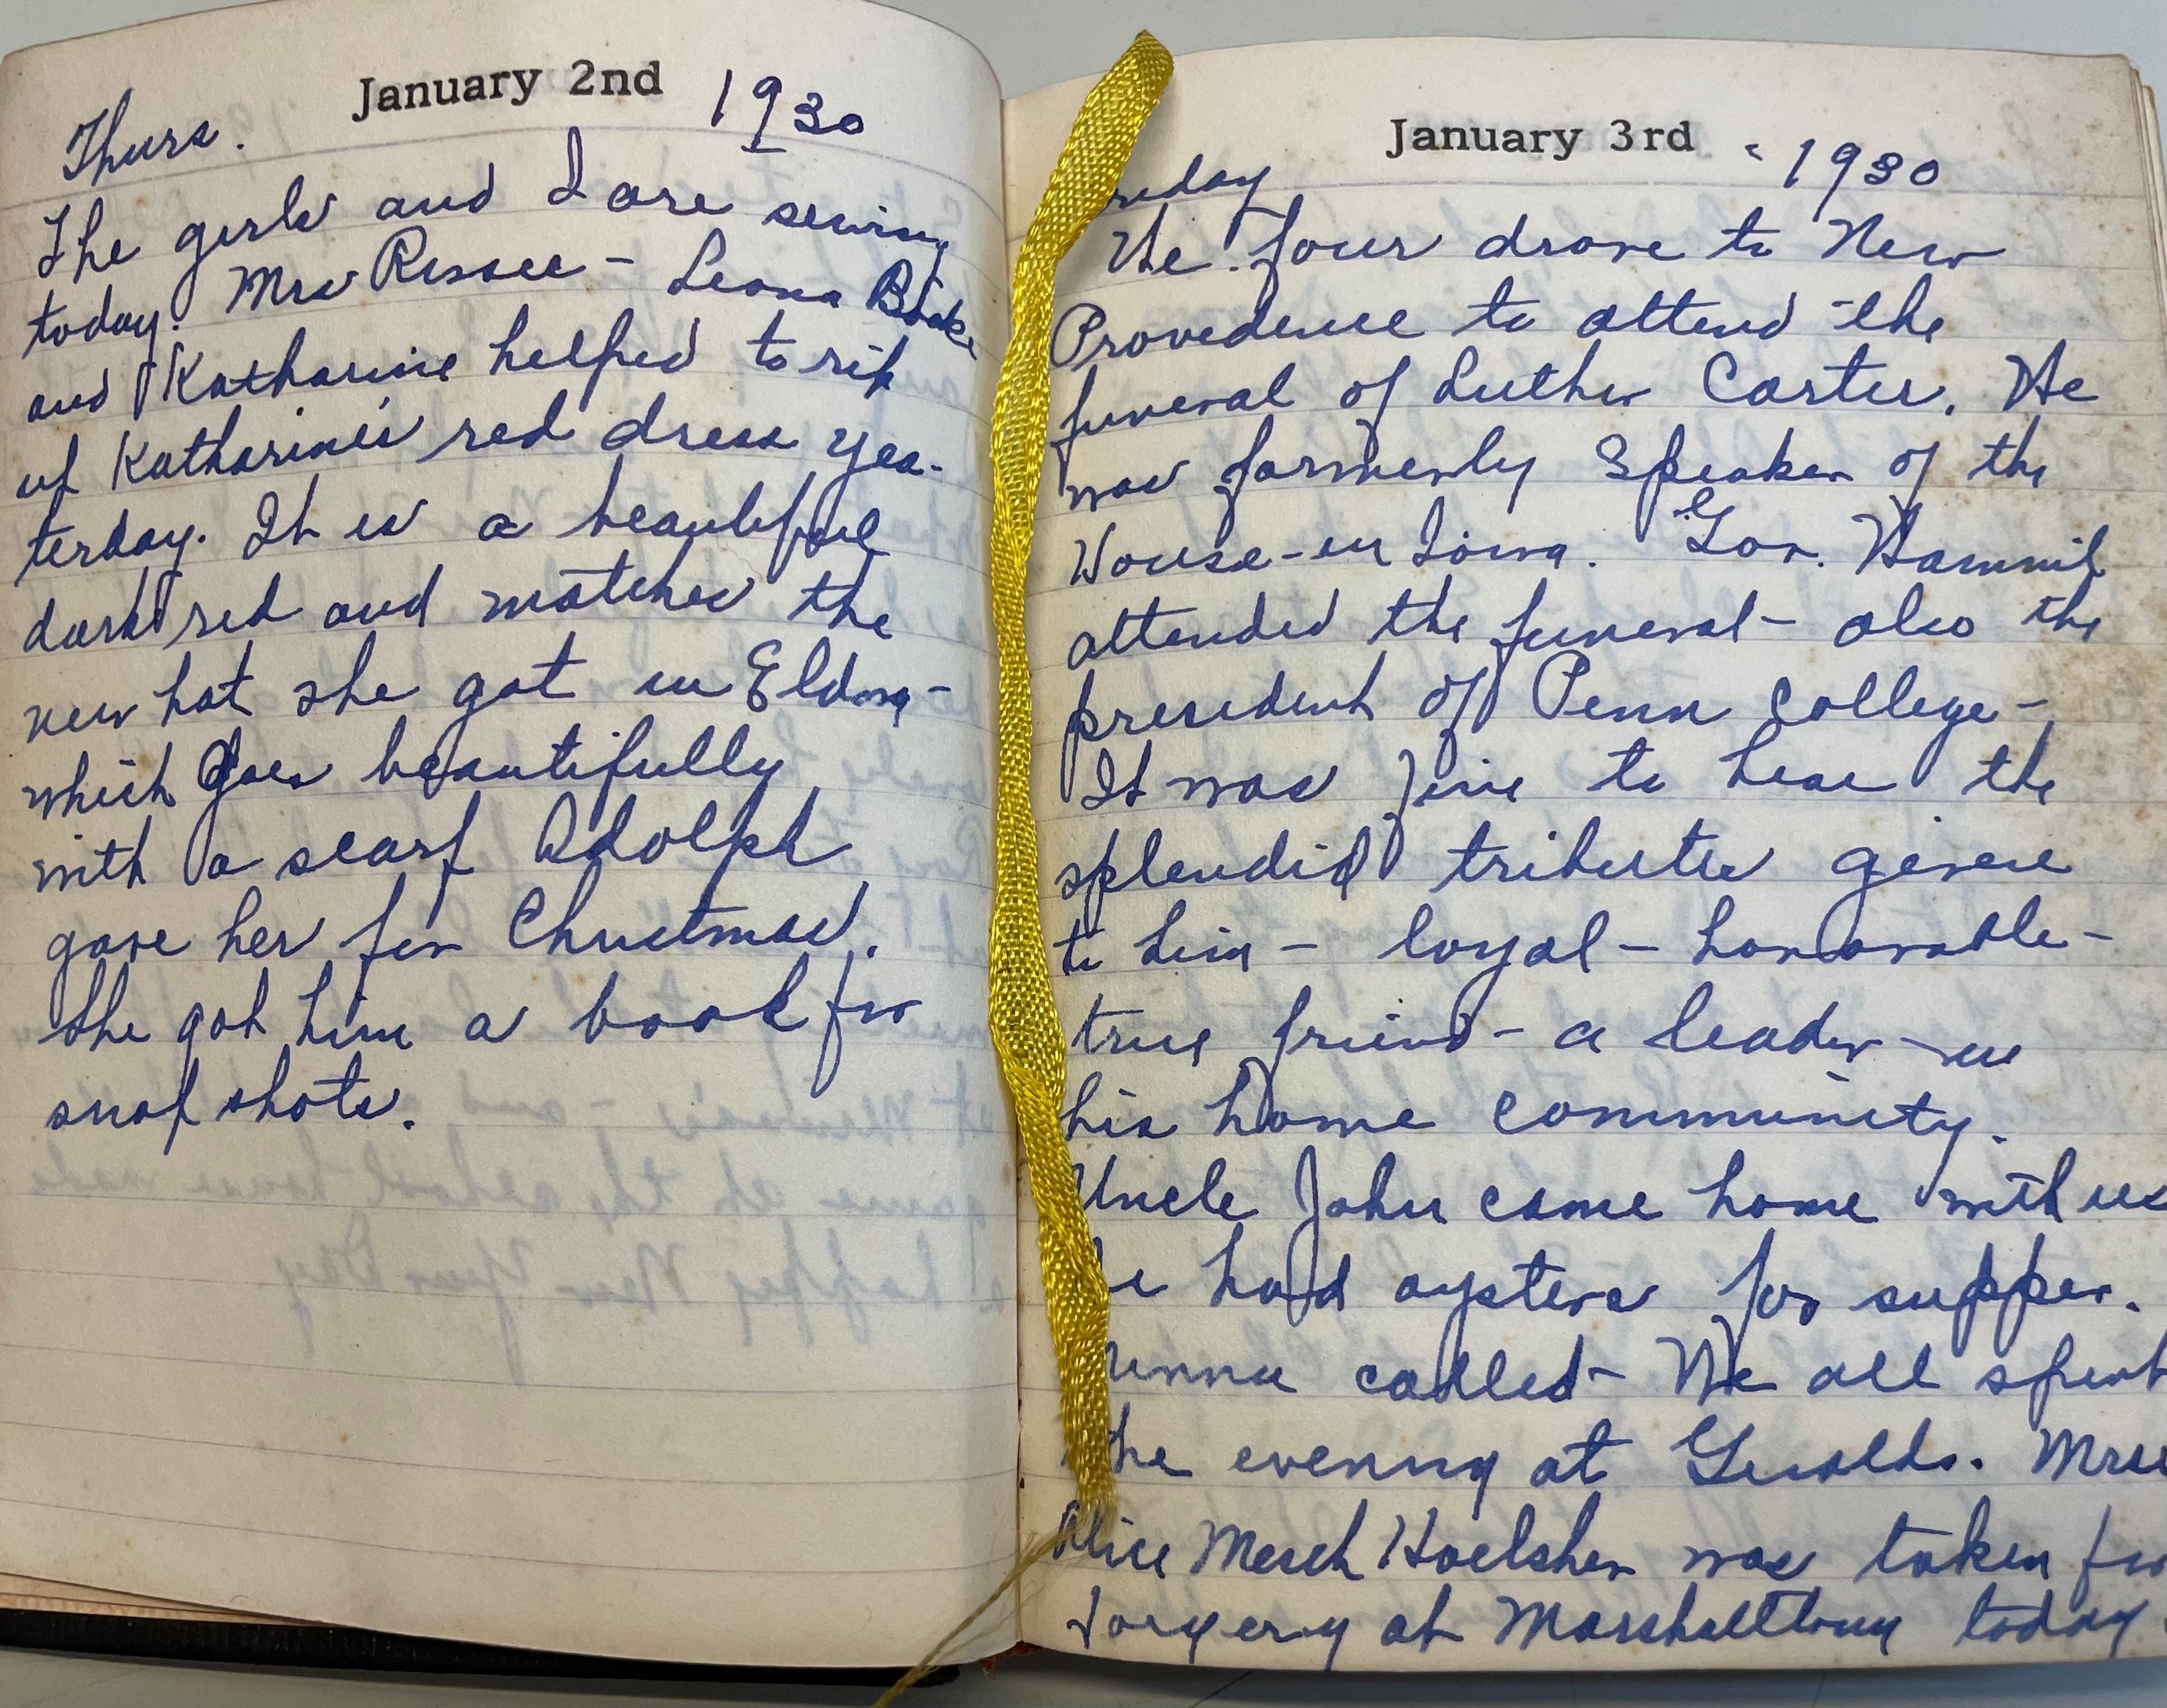 January 2nd 1930
Thurs.
The girls and I are sewing
today. Mrs Rissee - Leona
and Katharine helped to rip
up Katharine's red dress yes-
terday. It is a beautiful
dark red and matches the
new hat she got in Eldora -
which goes beautifully
with a scarf Adolph
gave her for Christmas.
She got him a book for
snap shots.
January 3rd 1930
riday
We four drove to New
Providence to attend the
funeral of Luther Carter. He
was formerly Speaker of the
House - in Iowa. Gov. Hammil
attended the funeral - also the
president of Penn College -
It was fine to hear the
splendid tributes given
to him - loyal - honorable -
true friend - a leader in
his home community.
Uncle John came home with us
e had oysters for supper.
called - We all spent
the evening at Geralds. Mrs
Alice Mesch Hoelscher was taken for
forgery at Marshalltown today